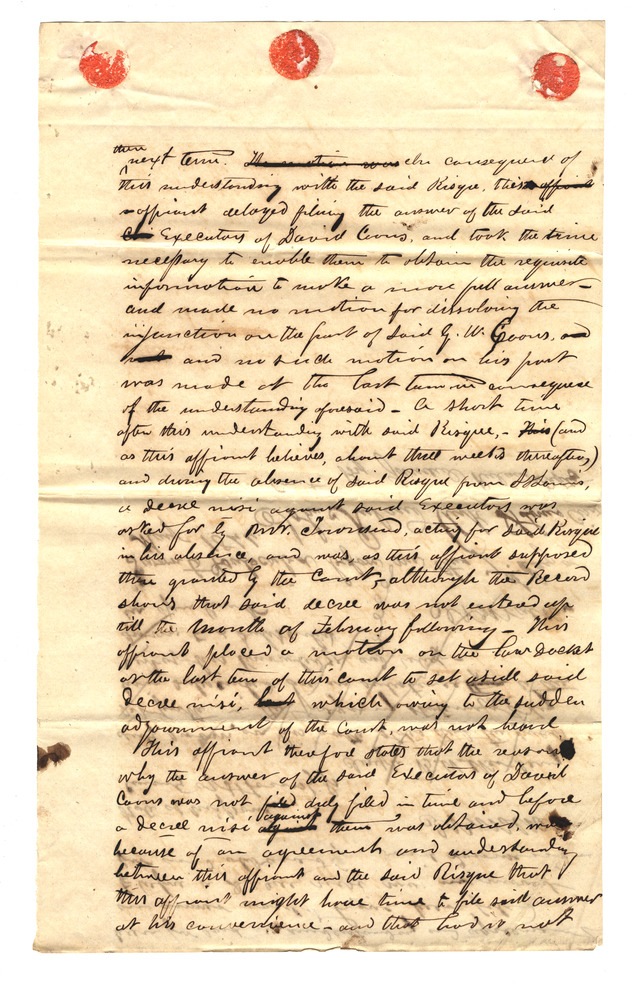 then
next term. The motion was In consequence of
this understanding with the said Risque, this affiant
affiant delayed filing the answer of the said
Executors of David Coons, and took the time
necessary to enable them to obtain the requisite
information to make a more full answer -
and made no motion for dissolving the
injunction on the part of said G. W. Coons, and
and no such motion on his part
was made at the last term in consequence
of the understanding aforesaid - A short time
after this understanding with said Risque, - This (and
as this affiant believes, about three weeks thereafter,)
and during the absence of said Risque from St Louis,
a decree nisi against said Executors was
asked for by Mr. Townsend, acting for said Risque
in his absence, and was, as this affiant supposed
then granted by the Court, - although the Record
shows that said decree was not entered up
till the month of February following - This
affiant placed a motion on the Law Docket
at the last term of this court to set aside said
decree nisi, but which owing to the sudden
adjournment of the Court, was not heard
This affiant therefore states that the reason
why the answer of the said Executors of David
Coons was not filed duly filed in time and before
a decree nisi against against them was obtained, was
because of an agreement and understanding
between this affiant and the said Risque that
this affiant might have time to file said answer
at his convenience - and that had it not